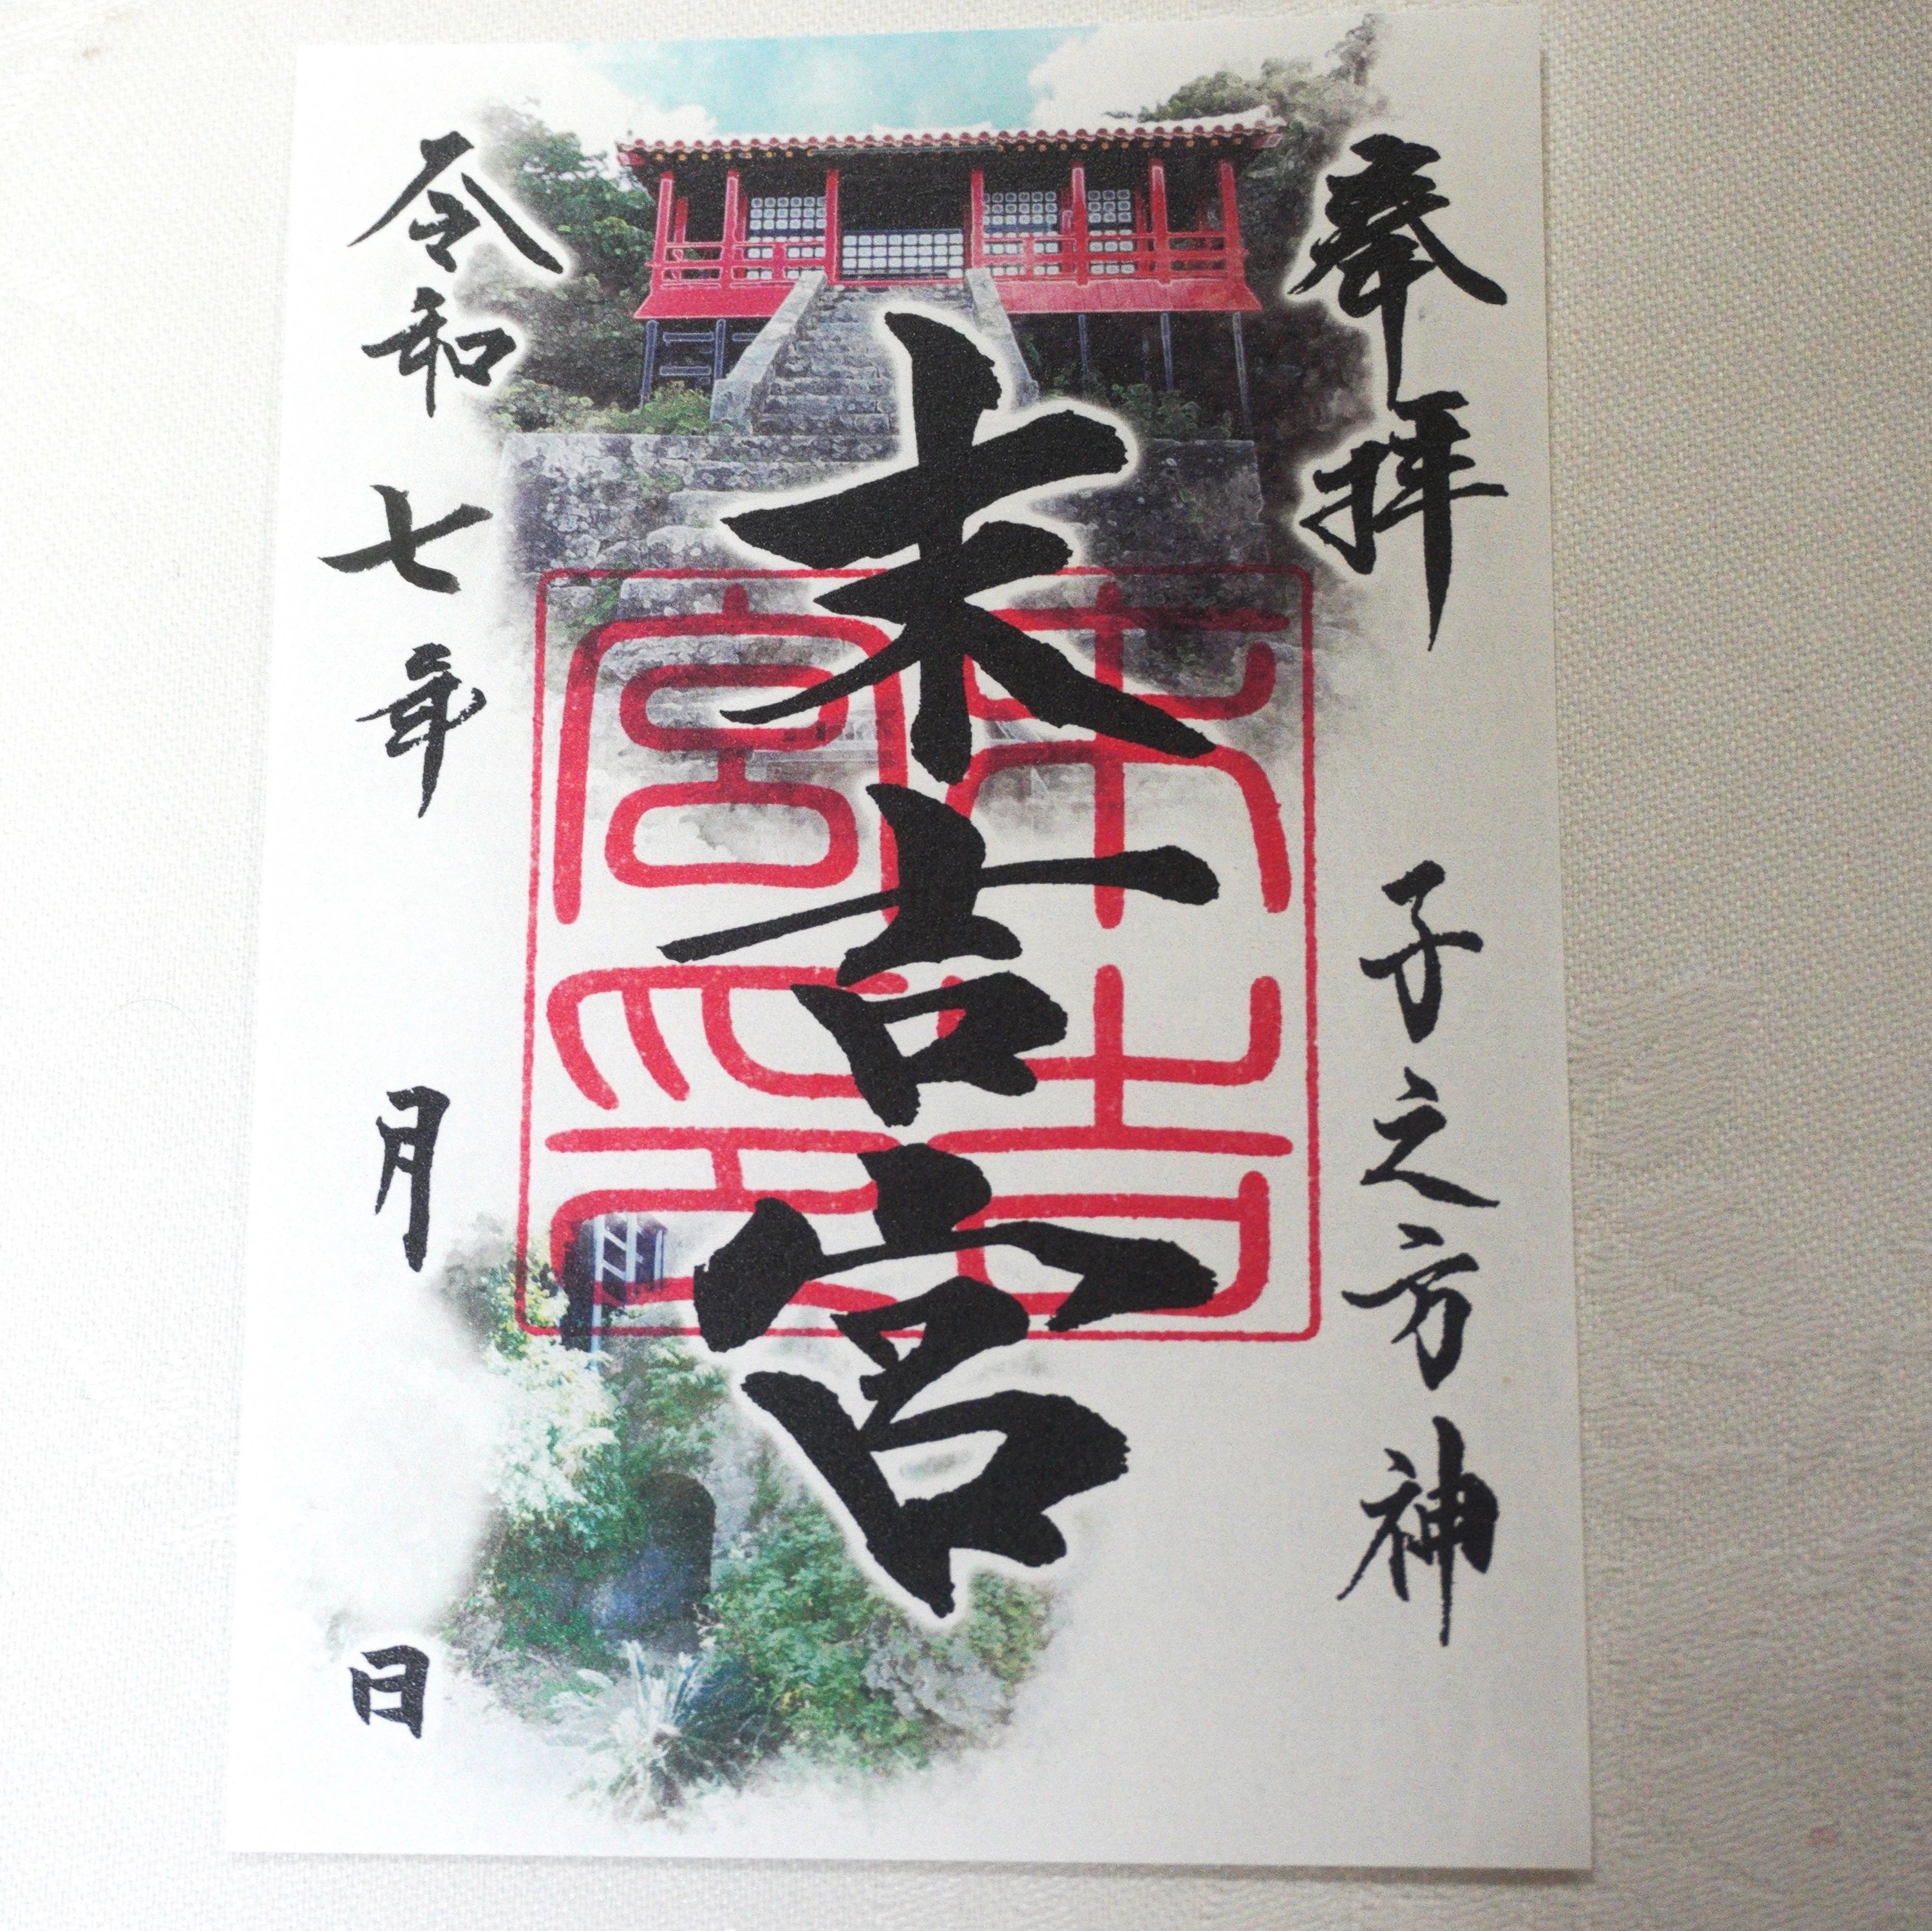 奉拝
子之方神
末吉宮
末吉宮印
令和七年 月 日